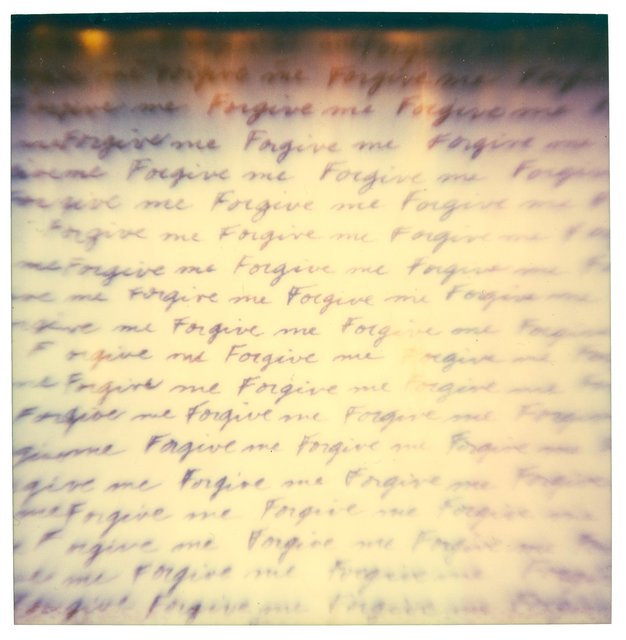 me Forgive me Forgive me Forgive
Forgive me Forgive me Forgive me
me Forgive me Forgive me Forgive me
give me Forgive me Forgive me Forgive
Forgive me Forgive me Forgive me
Forgive me Forgive me Forgive me F
me Forgive me Forgive me Forgive me
me Forgive me Forgive me Forgive me
Forgive me Forgive me Forgive me Forgive
Forgive me Forgive me Forgive me
me Forgive me Forgive me Forgive me
Forgive me Forgive me Forgive me Forgive
give me Forgive me Forgive me Forgive me
give me Forgive me Forgive me Forgive
me Forgive me Forgive me Forgive me
Forgive me Forgive me Forgive me
me Forgive me Forgive me Forgive
Forgive me Forgive me Forgive me